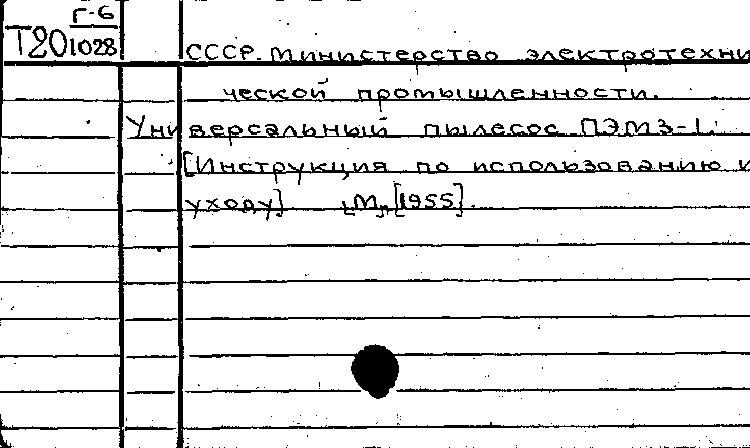 Г-6
Т20 1028
СССР. Министерство электротехни
ческой промышленности.
Универсальный пылесос ПЭМЗ-1.
[Инструкция по использованию и
уходу] [М.,] [1955].